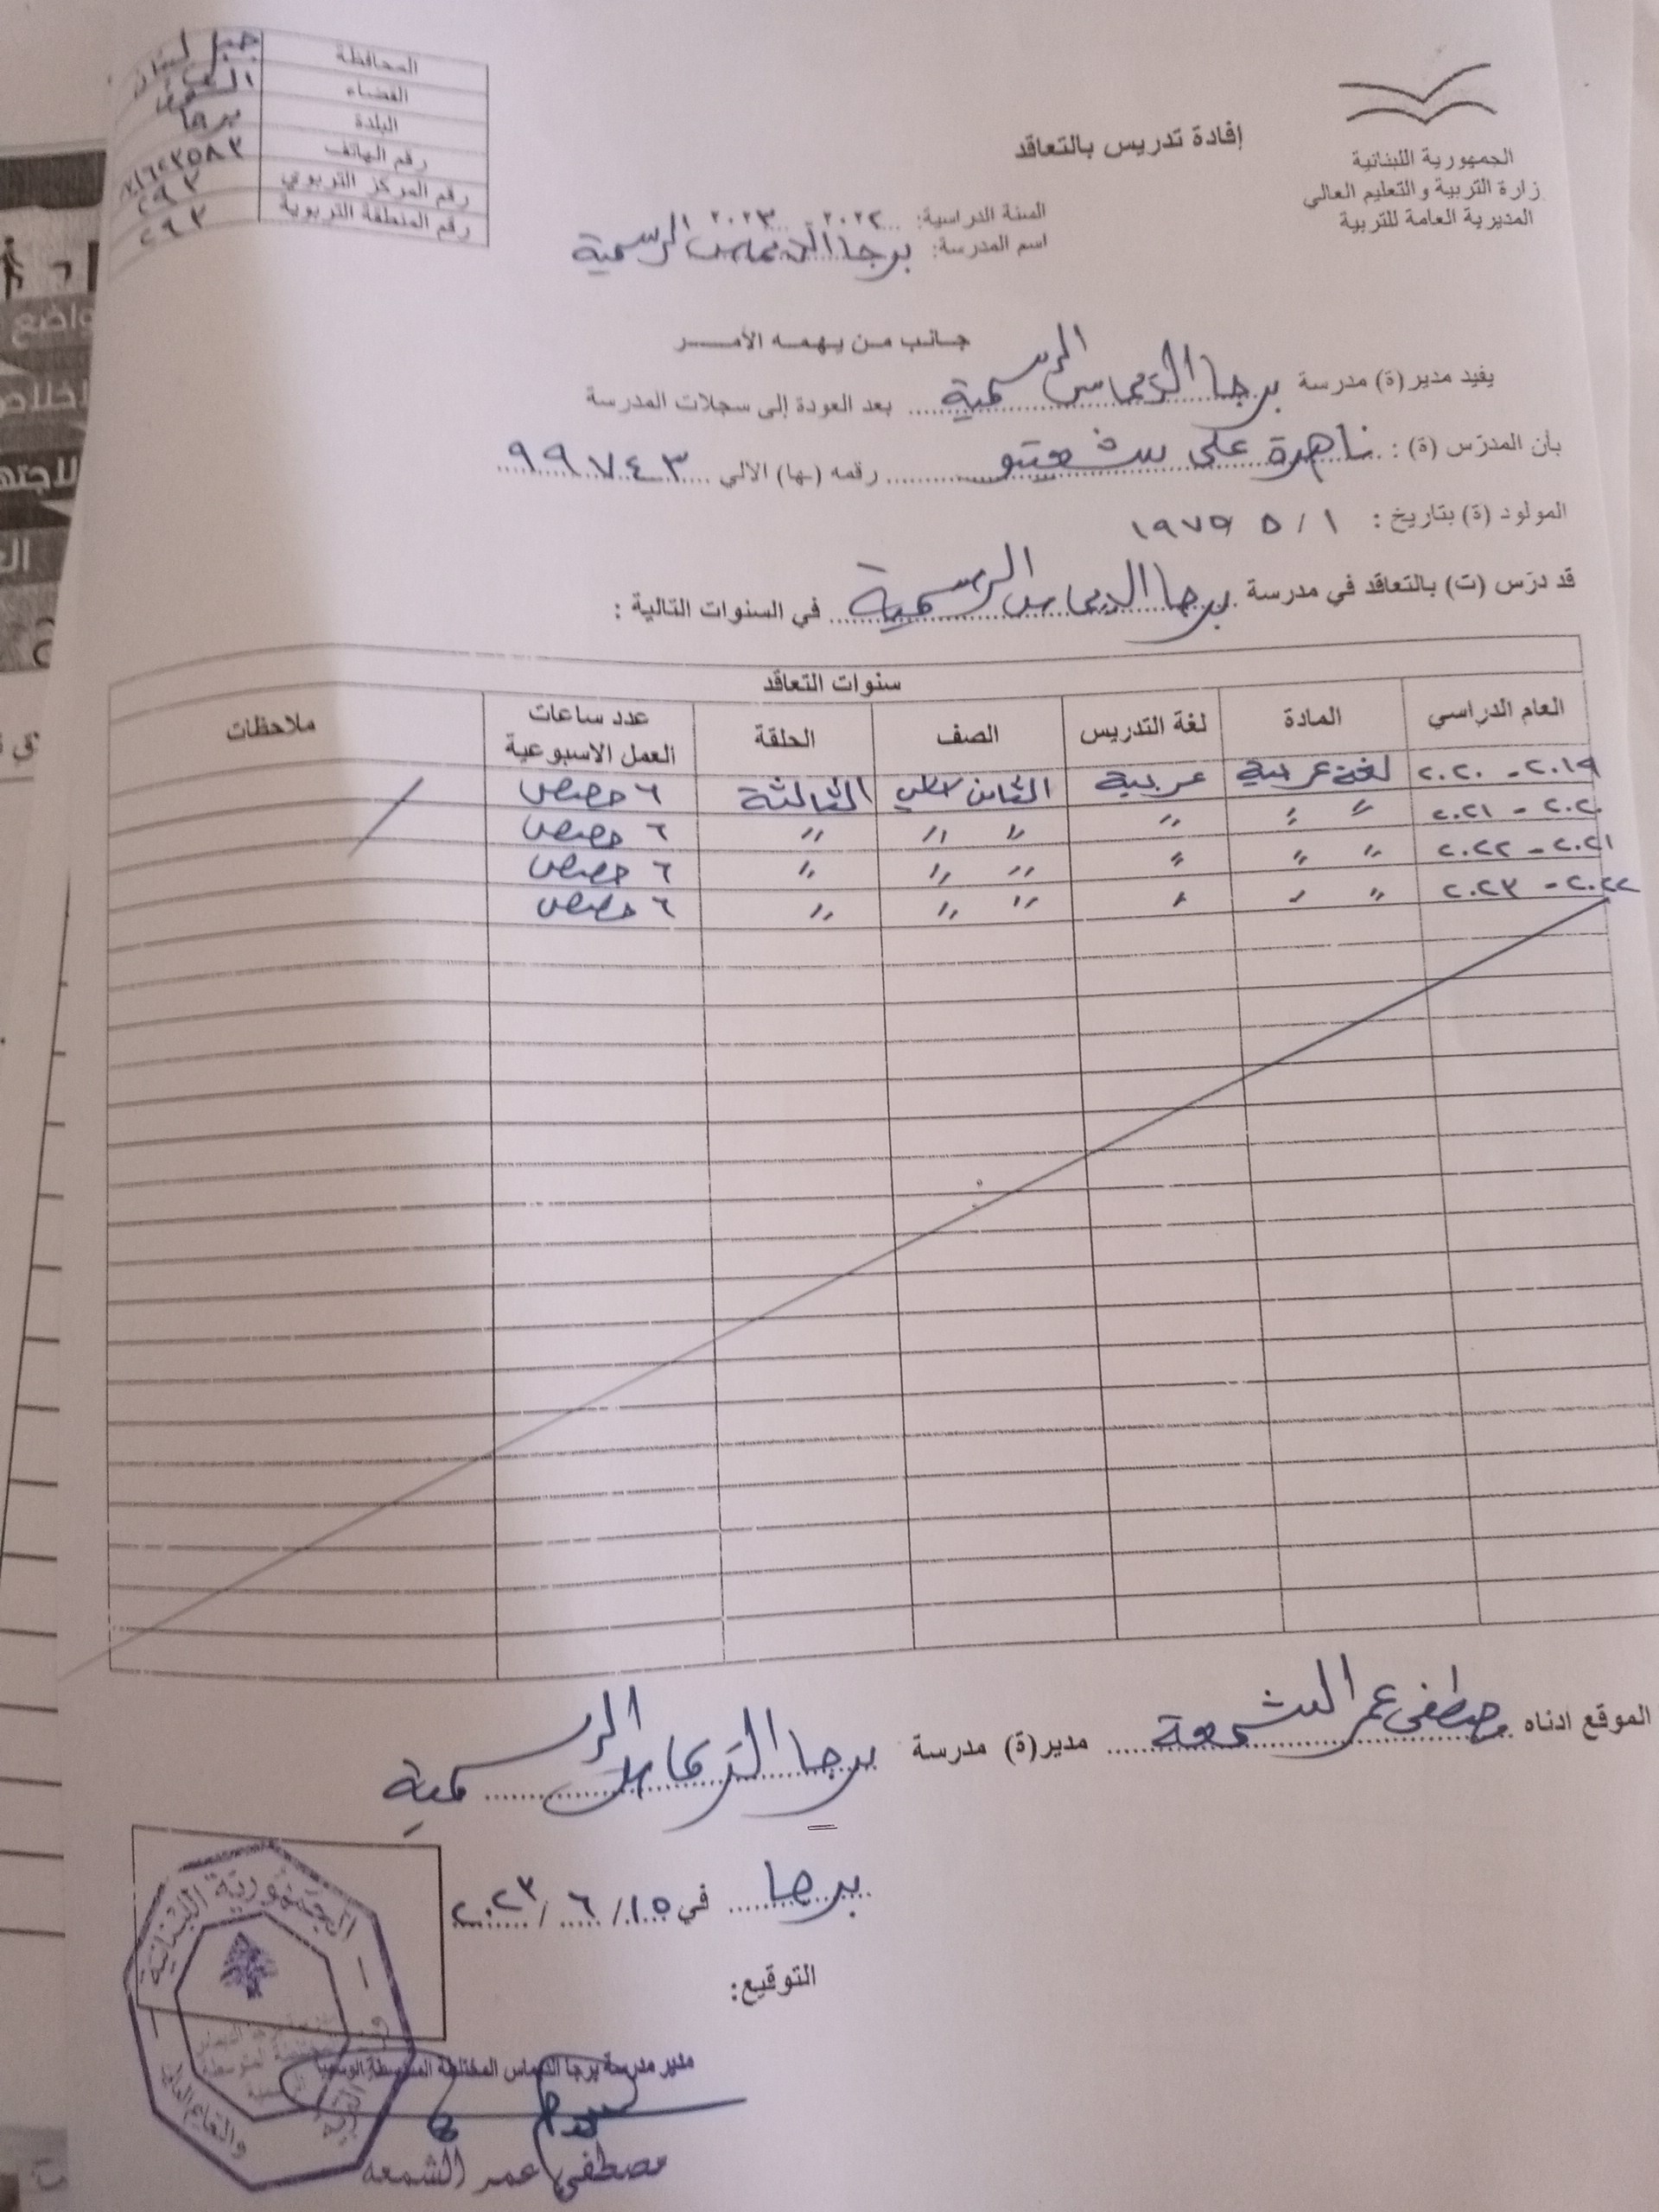 الجمهورية اللبنانية
وزارة التربية والتعليم العالي
المديرية العامة للتربية
إفادة تدريس بالتعاقد
السنة الدراسية: ٢٠٢٢ - ٢٠٢٣
اسم المدرسة: برجا الديماس الرسمية
المحافظة جبل لبنان
القضاء الشوف
البلدة برجا
رقم الهاتف
رقم المركز التربوي ٢٩٣
رقم المنطقة التربوية ٢٩٣
جانب من يهمه الأمر
يفيد مدير (ة) مدرسة برجا الديماس الرسمية بعد العودة إلى سجلات المدرسة
بأن المدرّس (ة) : ناهرة علي شعبتو رقمه (ها) الآلي ٩٩٧٤٣
المولود (ة) بتاريخ : ١ / ٥ ١٩٧٥
قد درّس (ت) بالتعاقد في مدرسة برجا الديماس الرسمية في السنوات التالية :
سنوات التعاقد
العام الدراسي المادة لغة التدريس الصف الحلقة عدد ساعات العمل الاسبوعية ملاحظات
٢٠١٩ - ٢٠٢٠ لغة عربية عربية الثامن الثالثة ٦ حصص /
٢٠٢٠ - ٢٠٢١ " " " " " " ٦ حصص
٢٠٢١ - ٢٠٢٢ " " " " " " ٦ حصص
٢٠٢٢ - ٢٠٢٣ " " " " " " ٦ حصص
الموقع ادناه مصطفى عمر الشمعة مدير(ة) مدرسة برجا الديماس الرسمية
برجا في ١٥ / ٦ / ٢٠٢٣
التوقيع:
مدير مدرسة برجا الديماس المختلطة المتوسطة الرسمية
مصطفى عمر الشمعه
الجمهورية اللبنانية
وزارة التربية
والتعليم العالي